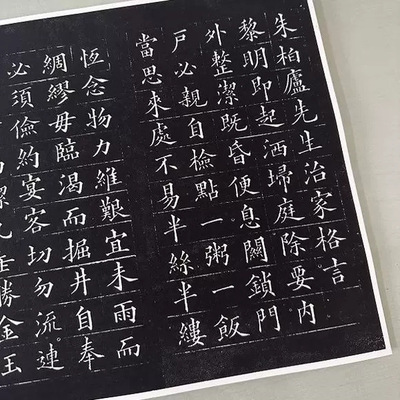 朱柏廬先生治家格言
黎明即起洒掃庭除要内
外整潔既昏便息關鎖門
戶必親自檢點一粥一飯
當思來處不易半絲半縷
恆念物力維艱宜未雨而
綢繆毋臨渴而掘井自奉
必須儉約宴客切勿流連
勝金玉